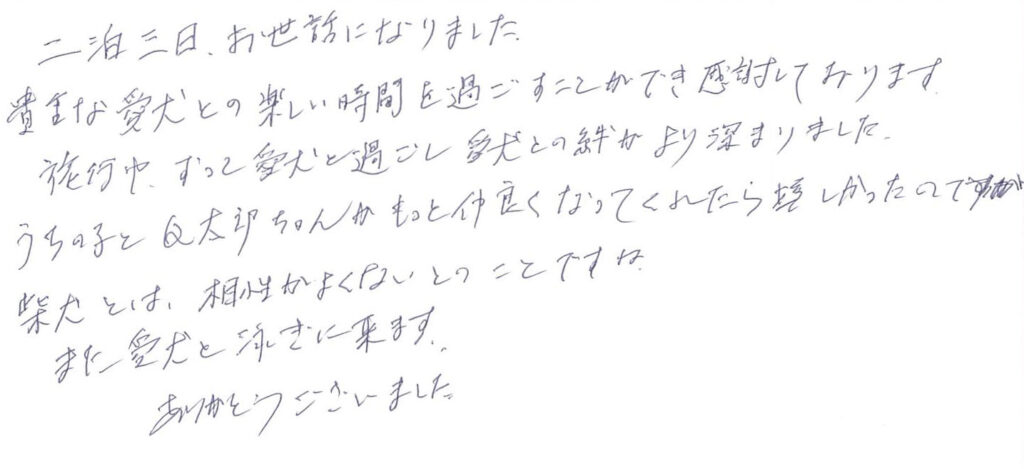 二泊三日、お世話になりました。
貴重な愛犬との楽しい時間を過ごすことができ感謝しております。
旅行中、ずっと愛犬と過ごし愛犬との絆がより深まりました。
うちの子とQ太郎ちゃんがもっと仲良くなってくれたら嬉しかったのですが
柴犬とは、相性がよくないとのことですね。
また愛犬と泳ぎに来ます。
ありがとうございました。